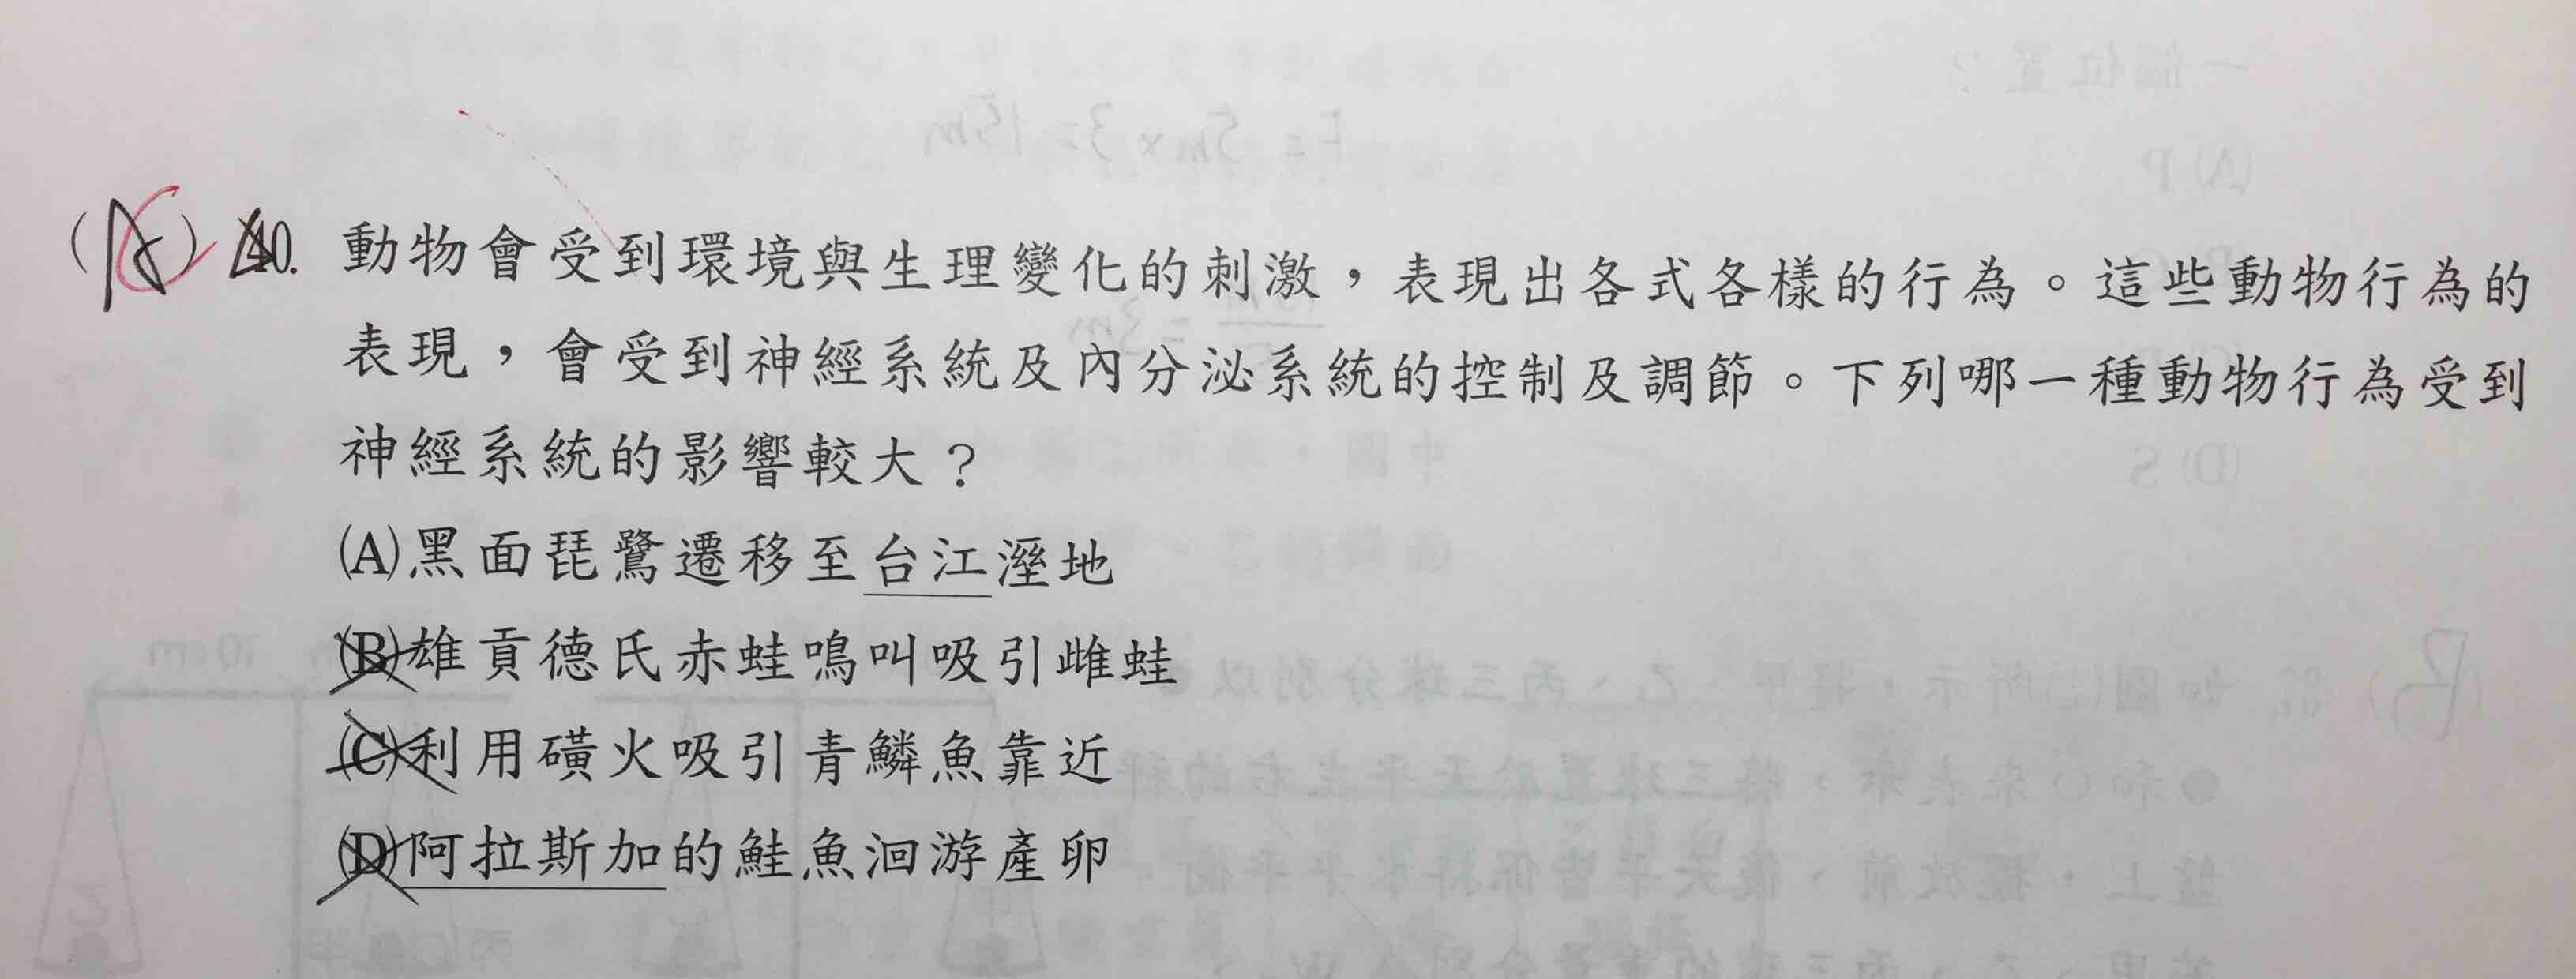 (A) 40. 動物會受到環境與生理變化的刺激，表現出各式各樣的行為。這些動物行為的
表現，會受到神經系統及內分泌系統的控制及調節。下列哪一種動物行為受到
神經系統的影響較大？
(A)黑面琵鷺遷移至台江溼地
(B)雄貢德氏赤蛙鳴叫吸引雌蛙
(C)利用磺火吸引青鱗魚靠近
(D)阿拉斯加的鮭魚洄游產卵